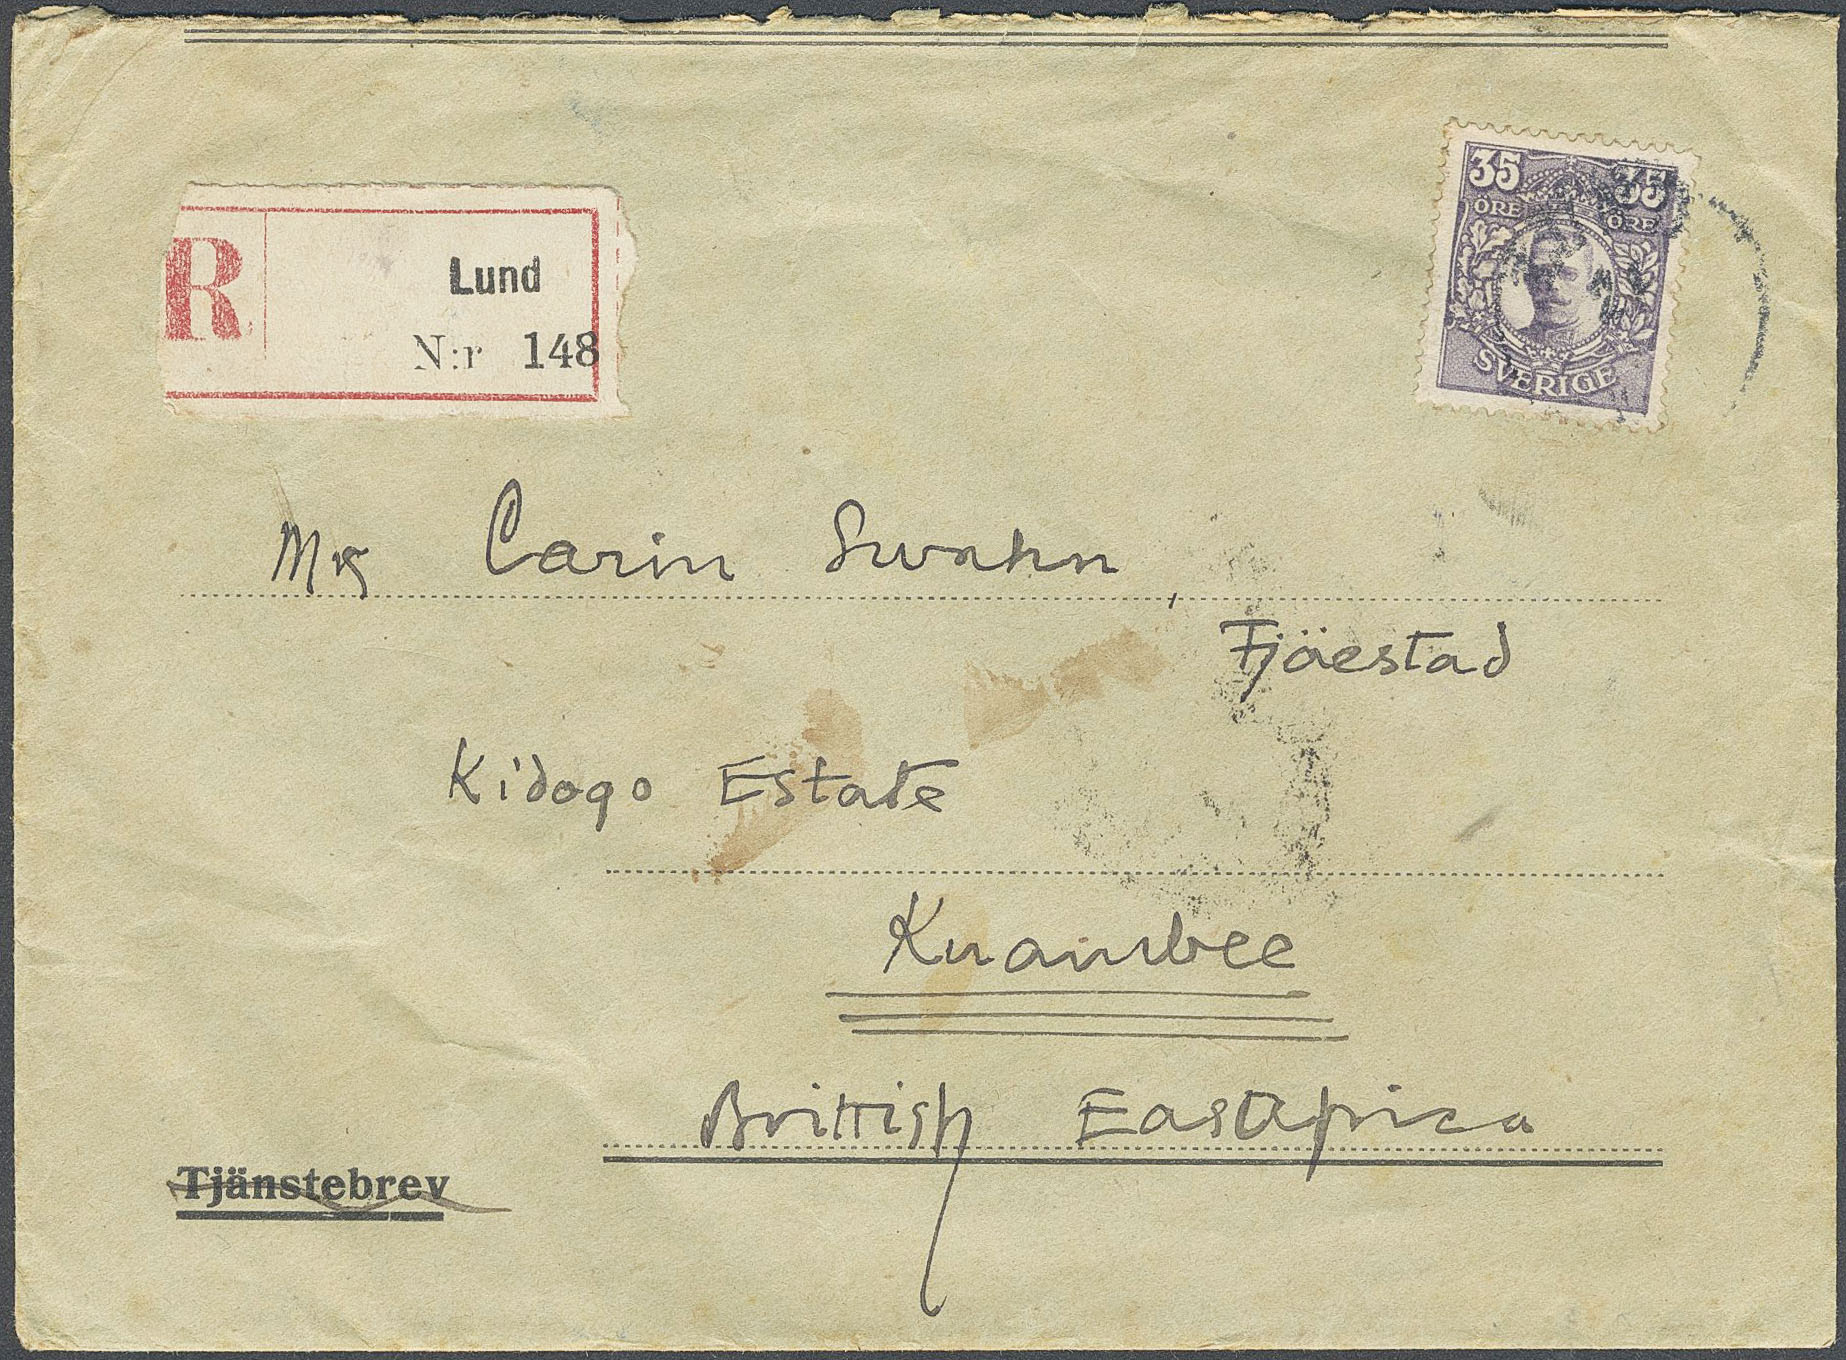 35 35
ÖRE ÖRE
SVERIGE
R Lund
N:r 148
Mrs Carin Swahn,
Fjäestad
Kidogo Estate
Kuambee
Brittish EastAfrica
Tjänstebrev